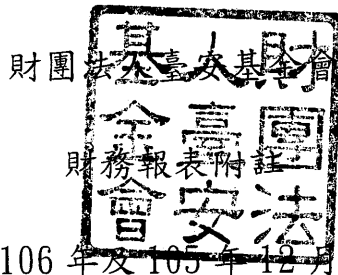 財團法人臺安基金會
財務報表附註
106 年及 105 年 12 月
財團法人臺安基金會